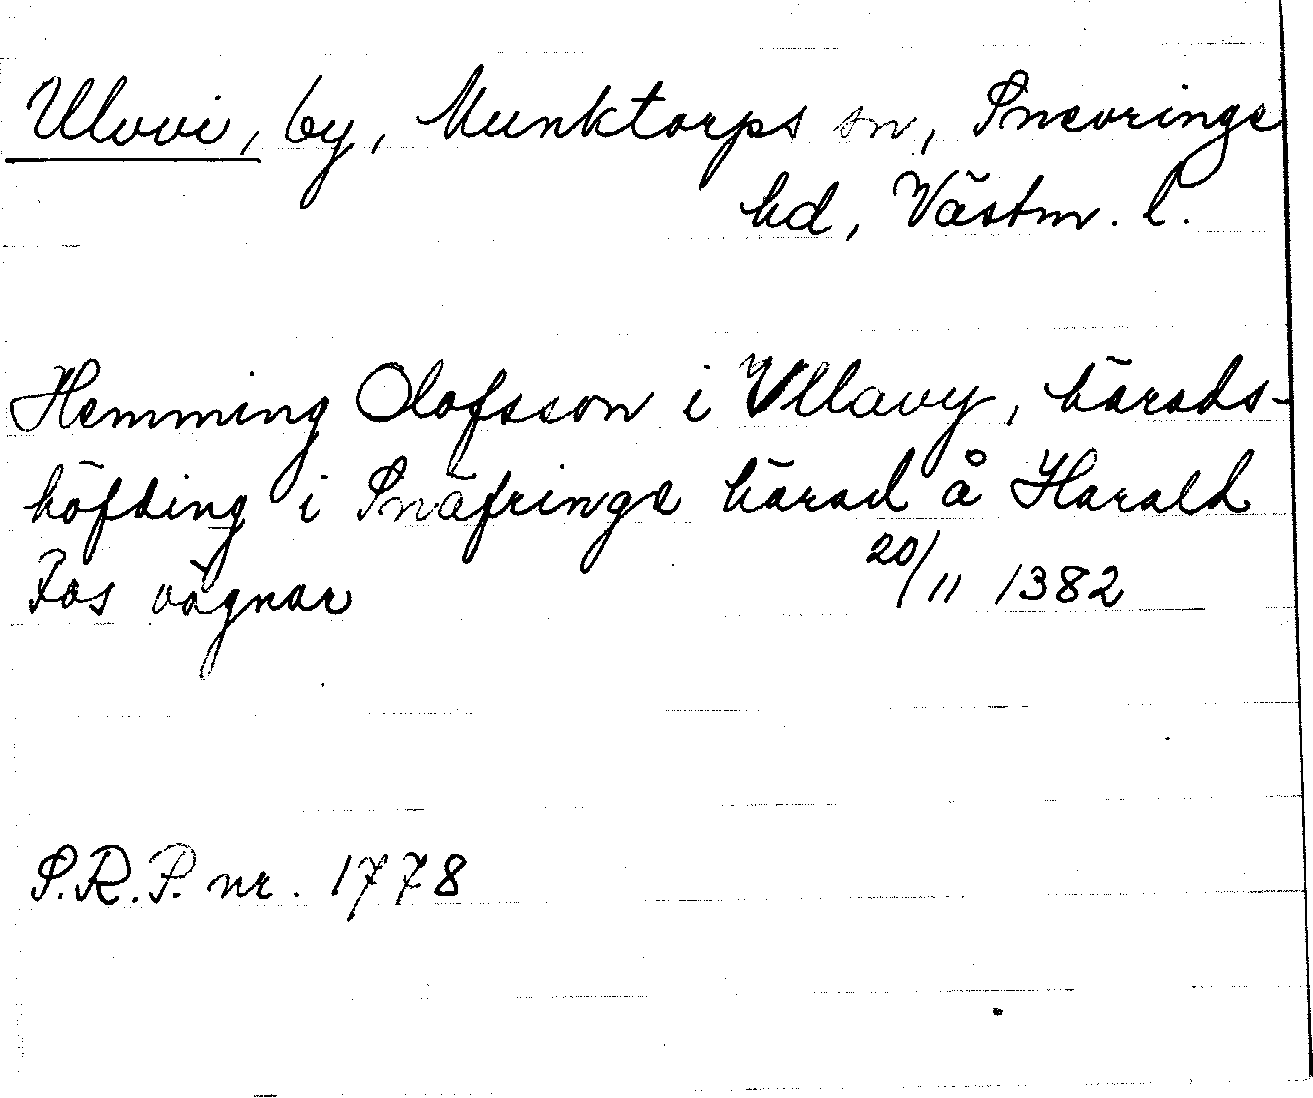 Ulvvi, by, Munktorps sn, Snevringe
hd, Västm. l.
Hemming Olofsson i Vllavy, härads-
höfding i Snäfringe härad å Harald
Fos vägnar 20/11 1382
S.R.P. nr. 1778